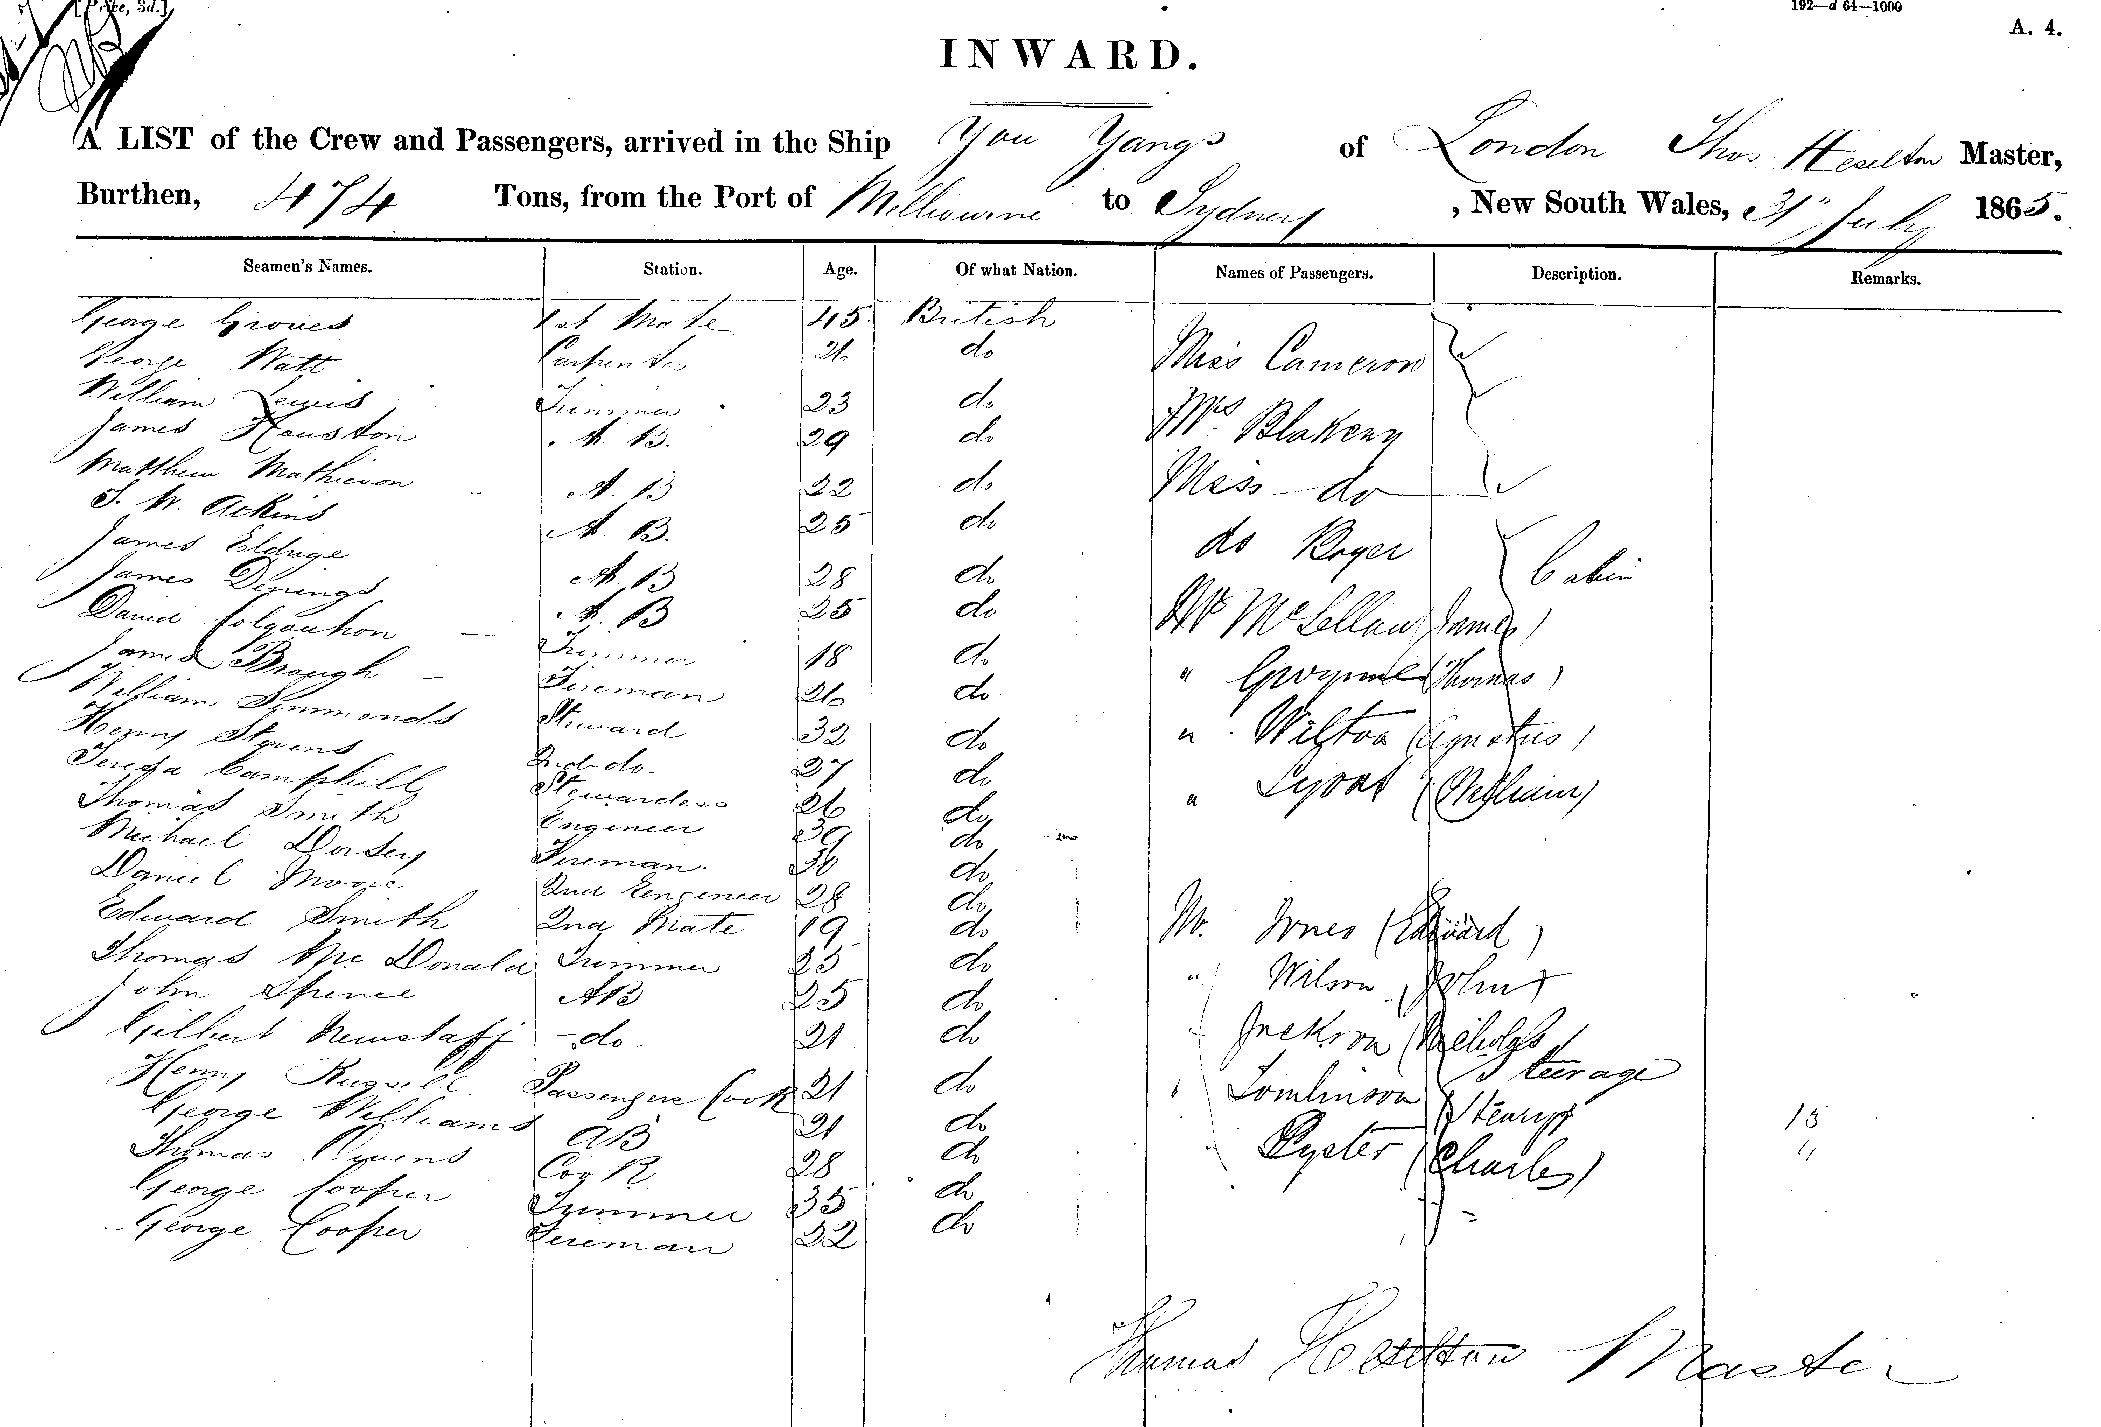 [Price, 3d.]
192—d 64—1000
A. 4.
INWARD.
A LIST of the Crew and Passengers, arrived in the Ship You Yangs of London Thos Heselton Master,
Burthen, 474 Tons, from the Port of Melbourne to Sydney, New South Wales, 31st July 1865.
Seamen's Names. Station. Age. Of what Nation. Names of Passengers. Description. Remarks.
George Groves 1st Mate 45 British
George Watt Carpenter do Miss Cameron
William Lewis Trimmer 23 do
James Houston A. B. 29 do Mrs Blakeny
Matthew Mathieson A. B 22 do Miss do
J. W. Ackins A. B. 25 do
James Eldrige A. B 28 do do Roger Cabin
James Denings A. B 25 do
David Colqauhon Trimmer 18 do Mr McLellan (James)
James Brough Fireman 26 do " Gwynne (Thomas)
William Simmonds Steward 32 do " Wilton (Agustus)
Henry Stevens 2nd do. 27 do
Teresa Campbell Stewardess 26 do " (William)
Thomas Smith Engeneer 39 do
Michael Dorsey Fireman. 30 do
Daniel Moore 2nd Eengeneer 28 do
Edward Smith 2nd Mate 19 do Mr. Jones (Edward)
Thomas Mc Donald Trimmer 25 do
John Spence AB 25 do " Wilson (John)
Gilbert Newstaff do 21 do " Jackson (Nicholas)
Steerage
Henry Russell Passengers Cook 21 do " Tomlinson (Henry)
George Williams AB 21 do 15
Thomas Owens Cook 28 do " Pyster (Charles)
George Cooper Trimmer 35 do
George Cooper Fireman 22 do
Thomas Heselton Master